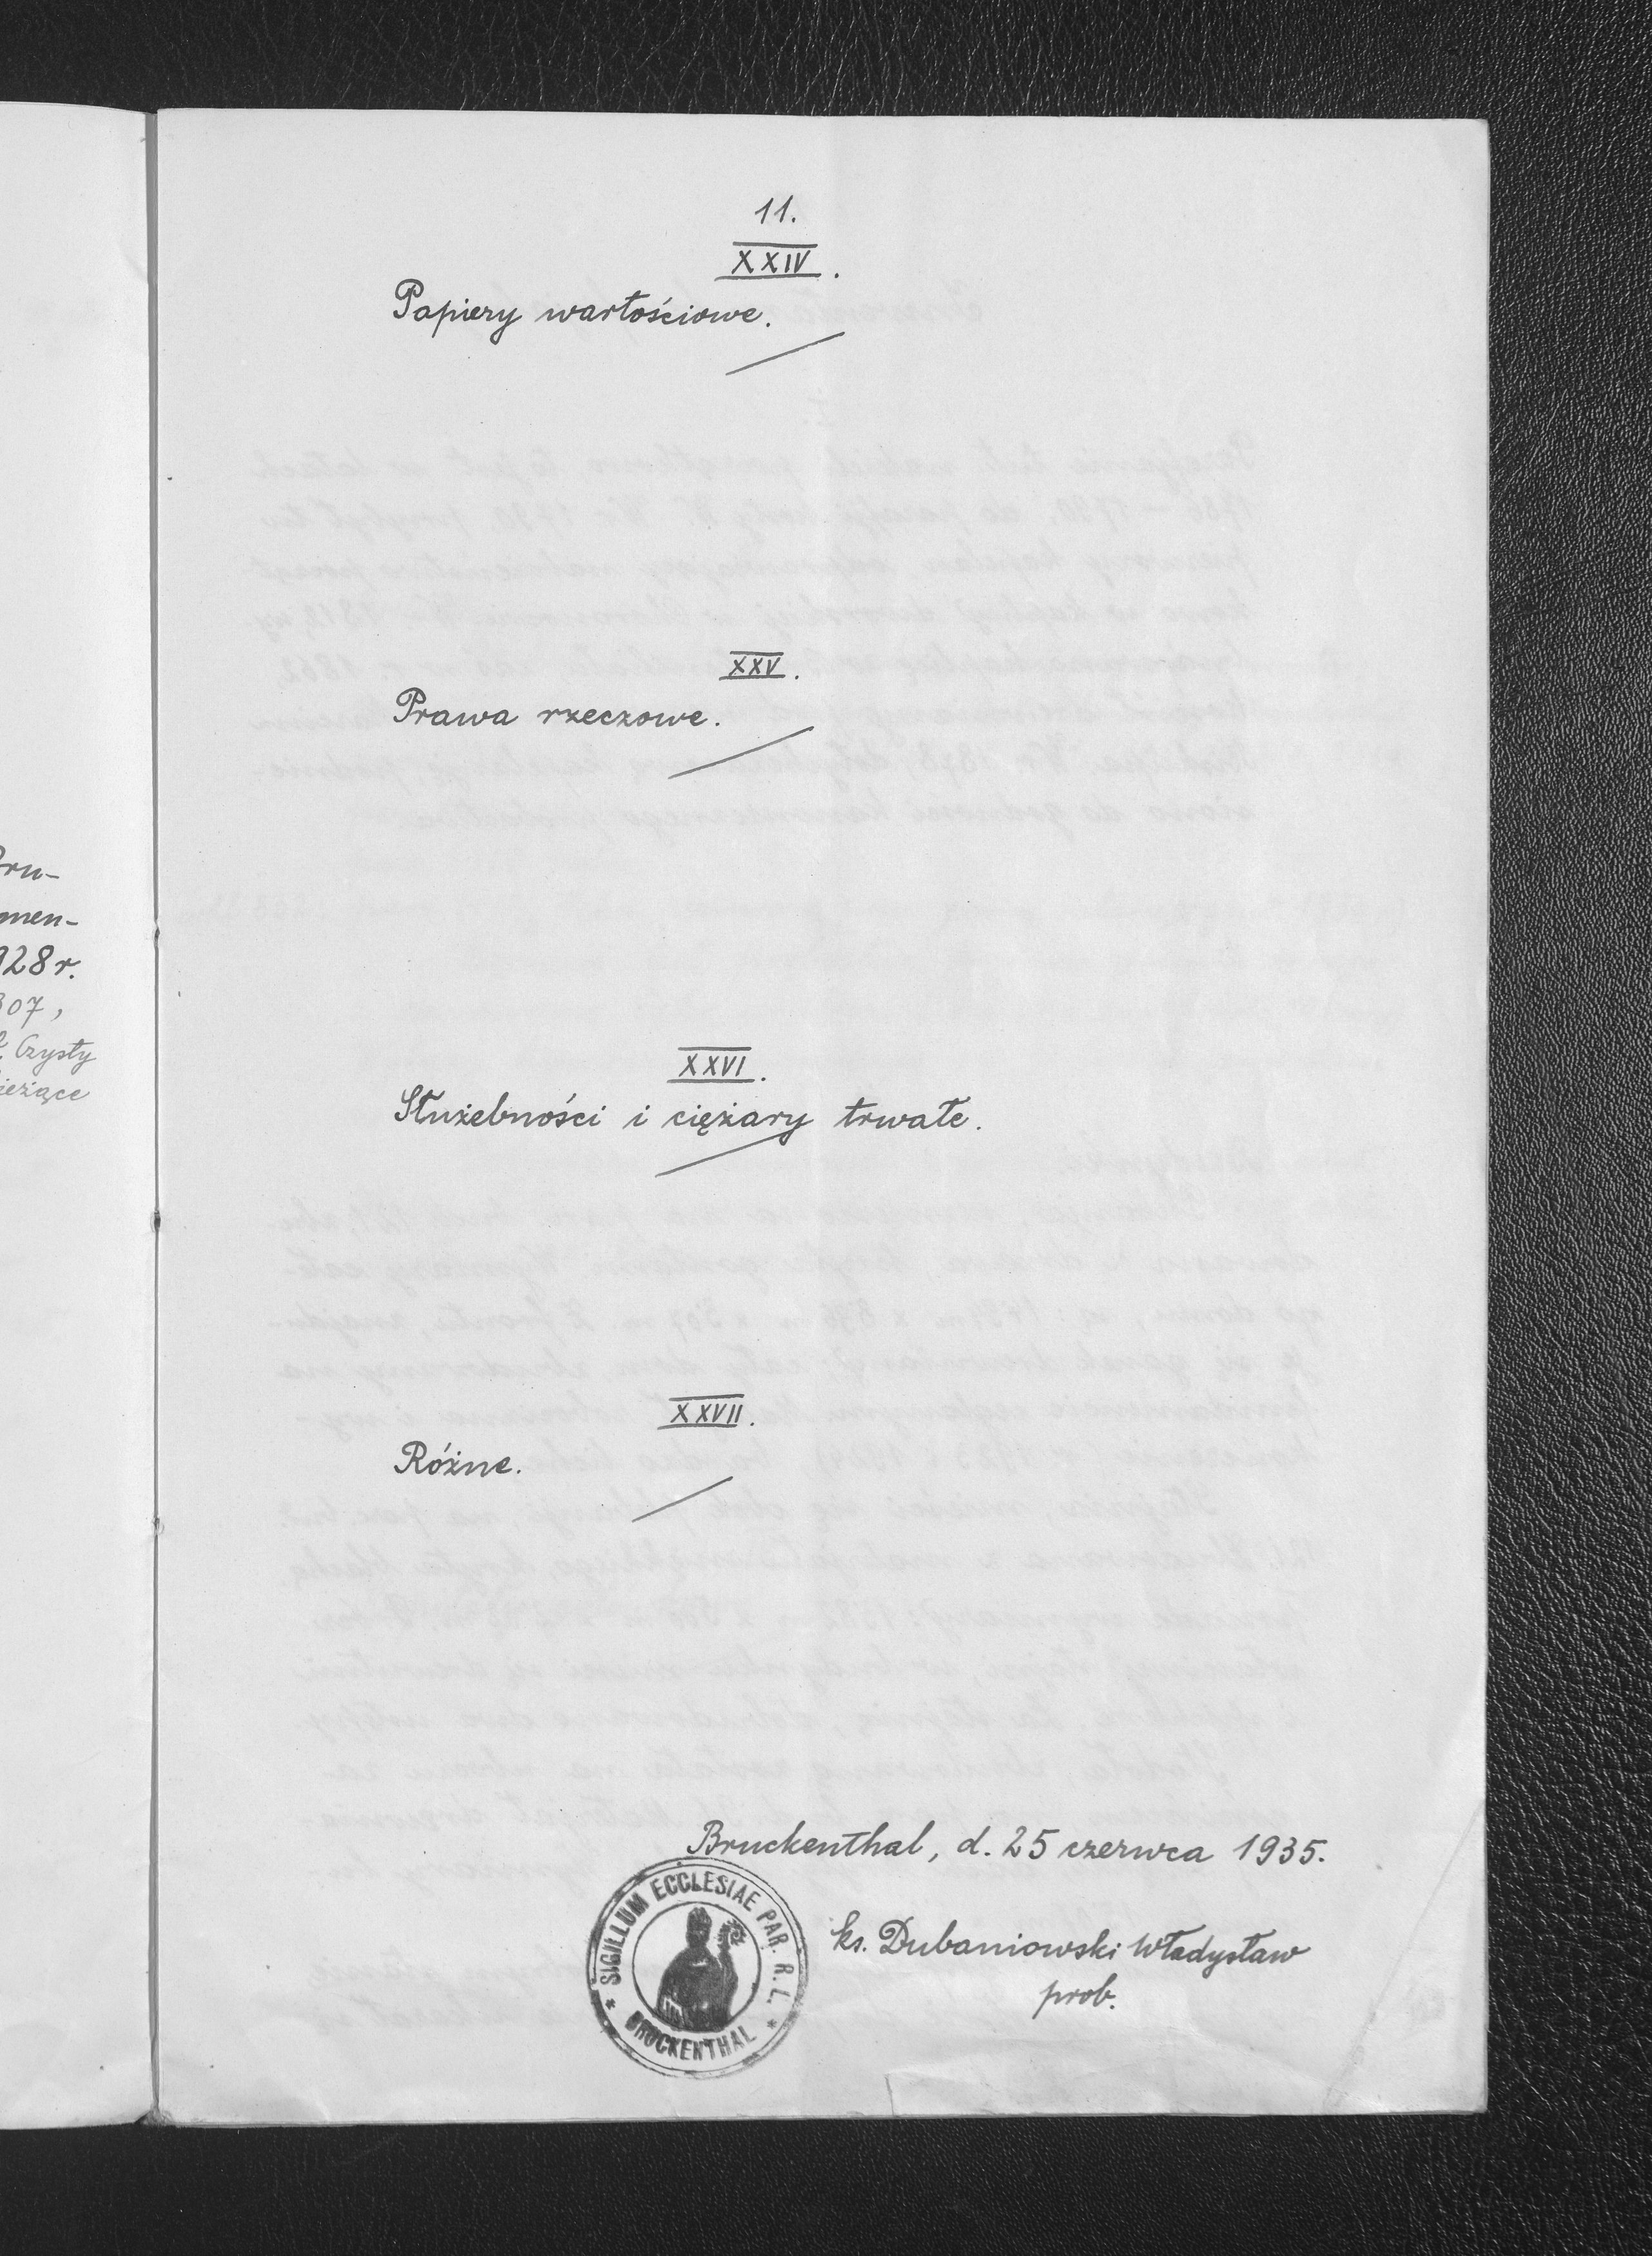 ru-
men-
928 r.
307,
Czysty
ieżące
11.
XXIV.
Papiery wartościowe.
XXV.
Prawa rzeczowe.
XXVI.
Służebności i ciężary trwałe.
XXVII.
Różne.
Bruckenthal, d. 25 czerwca 1935.
SIGILLUM ECCLESIAE PAR. R. L.
* BRUCKENTHAL *
ks. Dubaniowski Władysław
prob.